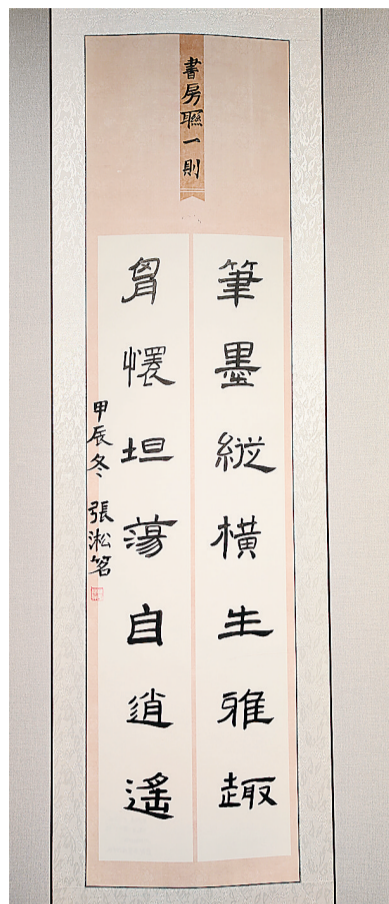 書房聯一則
筆墨縱橫生雅趣
胷懷坦蕩自逍遙
甲辰冬 張淞茗